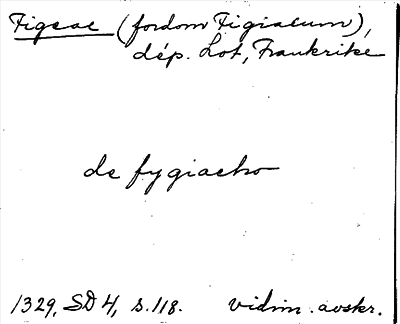 Figeac (fordom Figiacum),
dép. Lot, Frankrike
de fygiacho
1329, SD 4, s. 118. vidim. avskr.